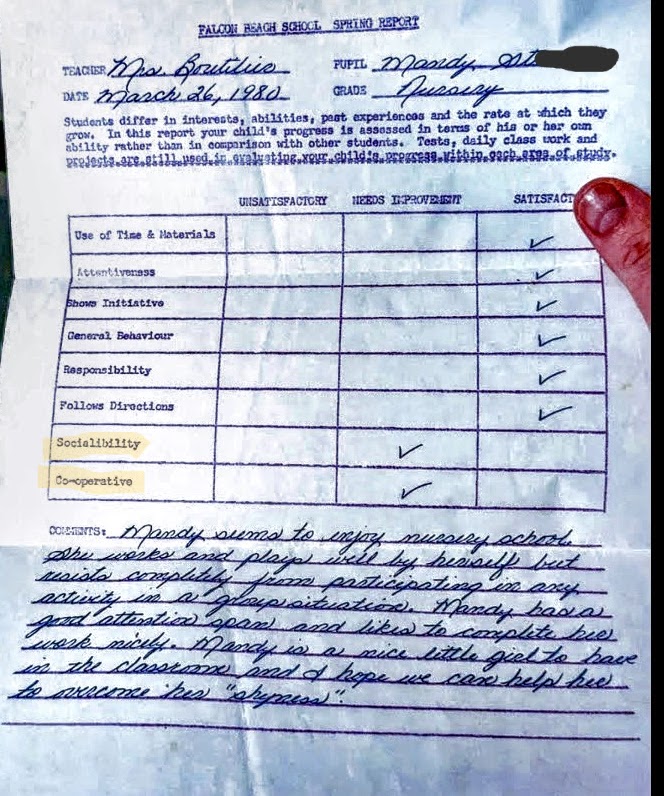 FALCON BEACH SCHOOL SPRING REPORT
TEACHER Mrs. Boutilier PUPIL Mandy St
DATE March 26, 1980 GRADE Nursery
Students differ in interests, abilities, past experiences and the rate at which they
grow. In this report your child's progress is assessed in terms of his or her own
ability rather than in comparison with other students. Tests, daily class work and
projects are still used in evaluating your child's progress within each area of study.
UNSATISFACTORY NEEDS IMPROVEMENT SATISFACT
Use of Time & Materials ✓
Attentiveness ✓
Shows Initiative ✓
General Behaviour ✓
Responsibility ✓
Follows Directions ✓
Socialibility ✓
Co-operative ✓
COMMENTS: Mandy seems to enjoy nursery school.
She works and plays well by herself but
resists completely from participating in any
activity in a group situation. Mandy has a
good attention span and likes to complete her
work nicely. Mandy is a nice little girl to have
in the classroom and I hope we can help her
to overcome her "shyness".